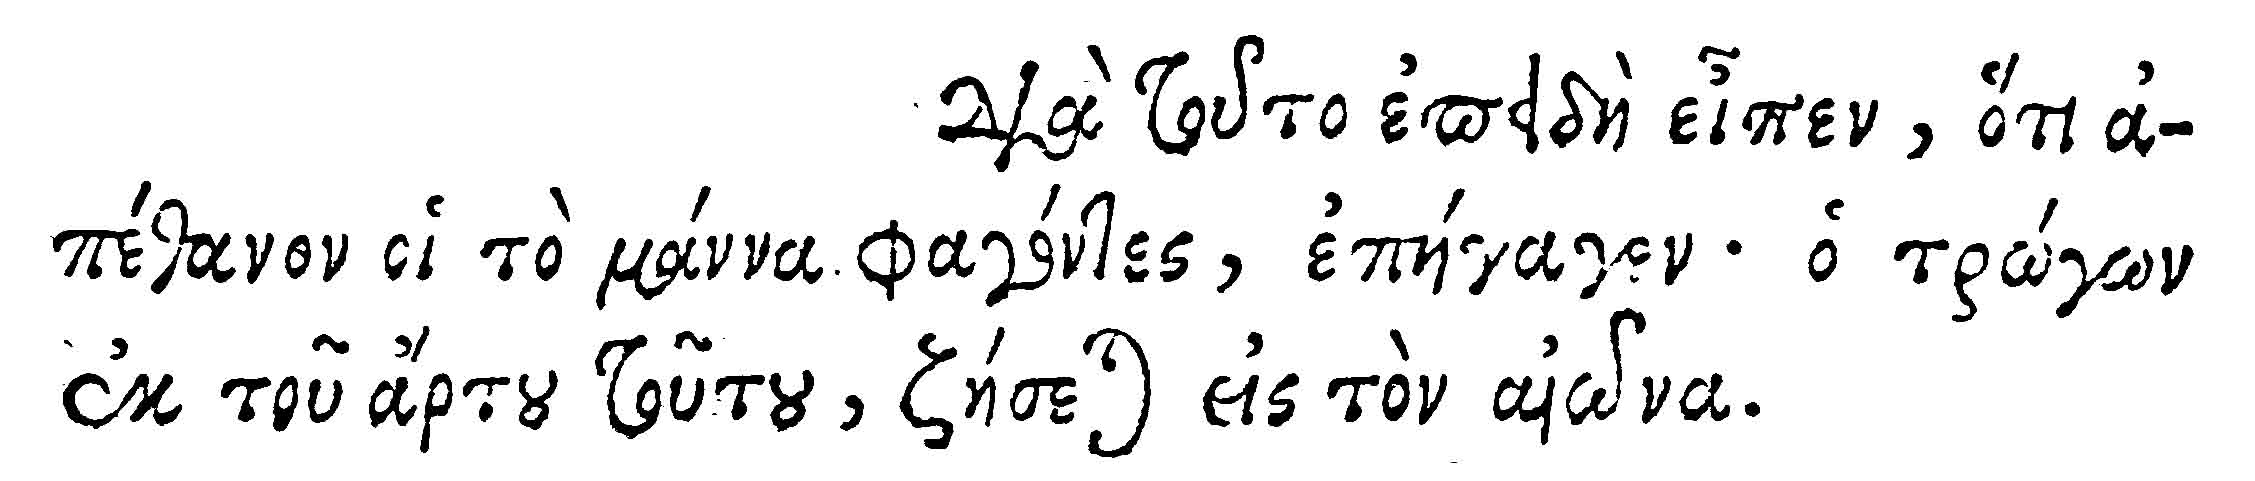 Διὰ τοῦτο ἐπειδὴ εἶπεν, ὅτι ἀ-
πέθανον οἱ τὸ μάννα φαγόντες, ἐπήγαγεν· ὁ τρώγων
ἐκ τοῦ ἄρτου τοῦτου, ζήσεται εἰς τὸν αἰῶνα.